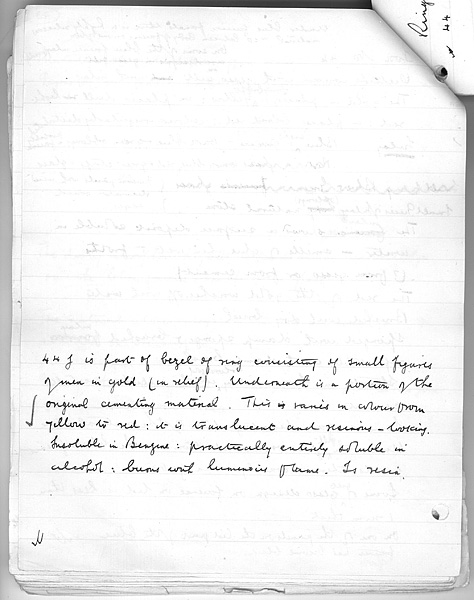 Ring
44
44 J is part of bezel of ring consisting of small figures
of men in gold (in relief). Underneath is a portion of the
original cementing material. This is varies in colour from
yellow to red : it is translucent and resinous-looking.
Insoluble in Benzine : practically entirely soluble in
alcohol : burns with luminous flame. Is resin.